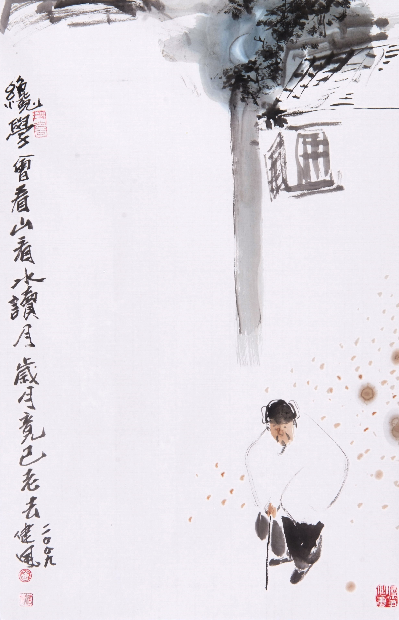 纔學會看山看水讀月歲月竟已老去
二〇〇九